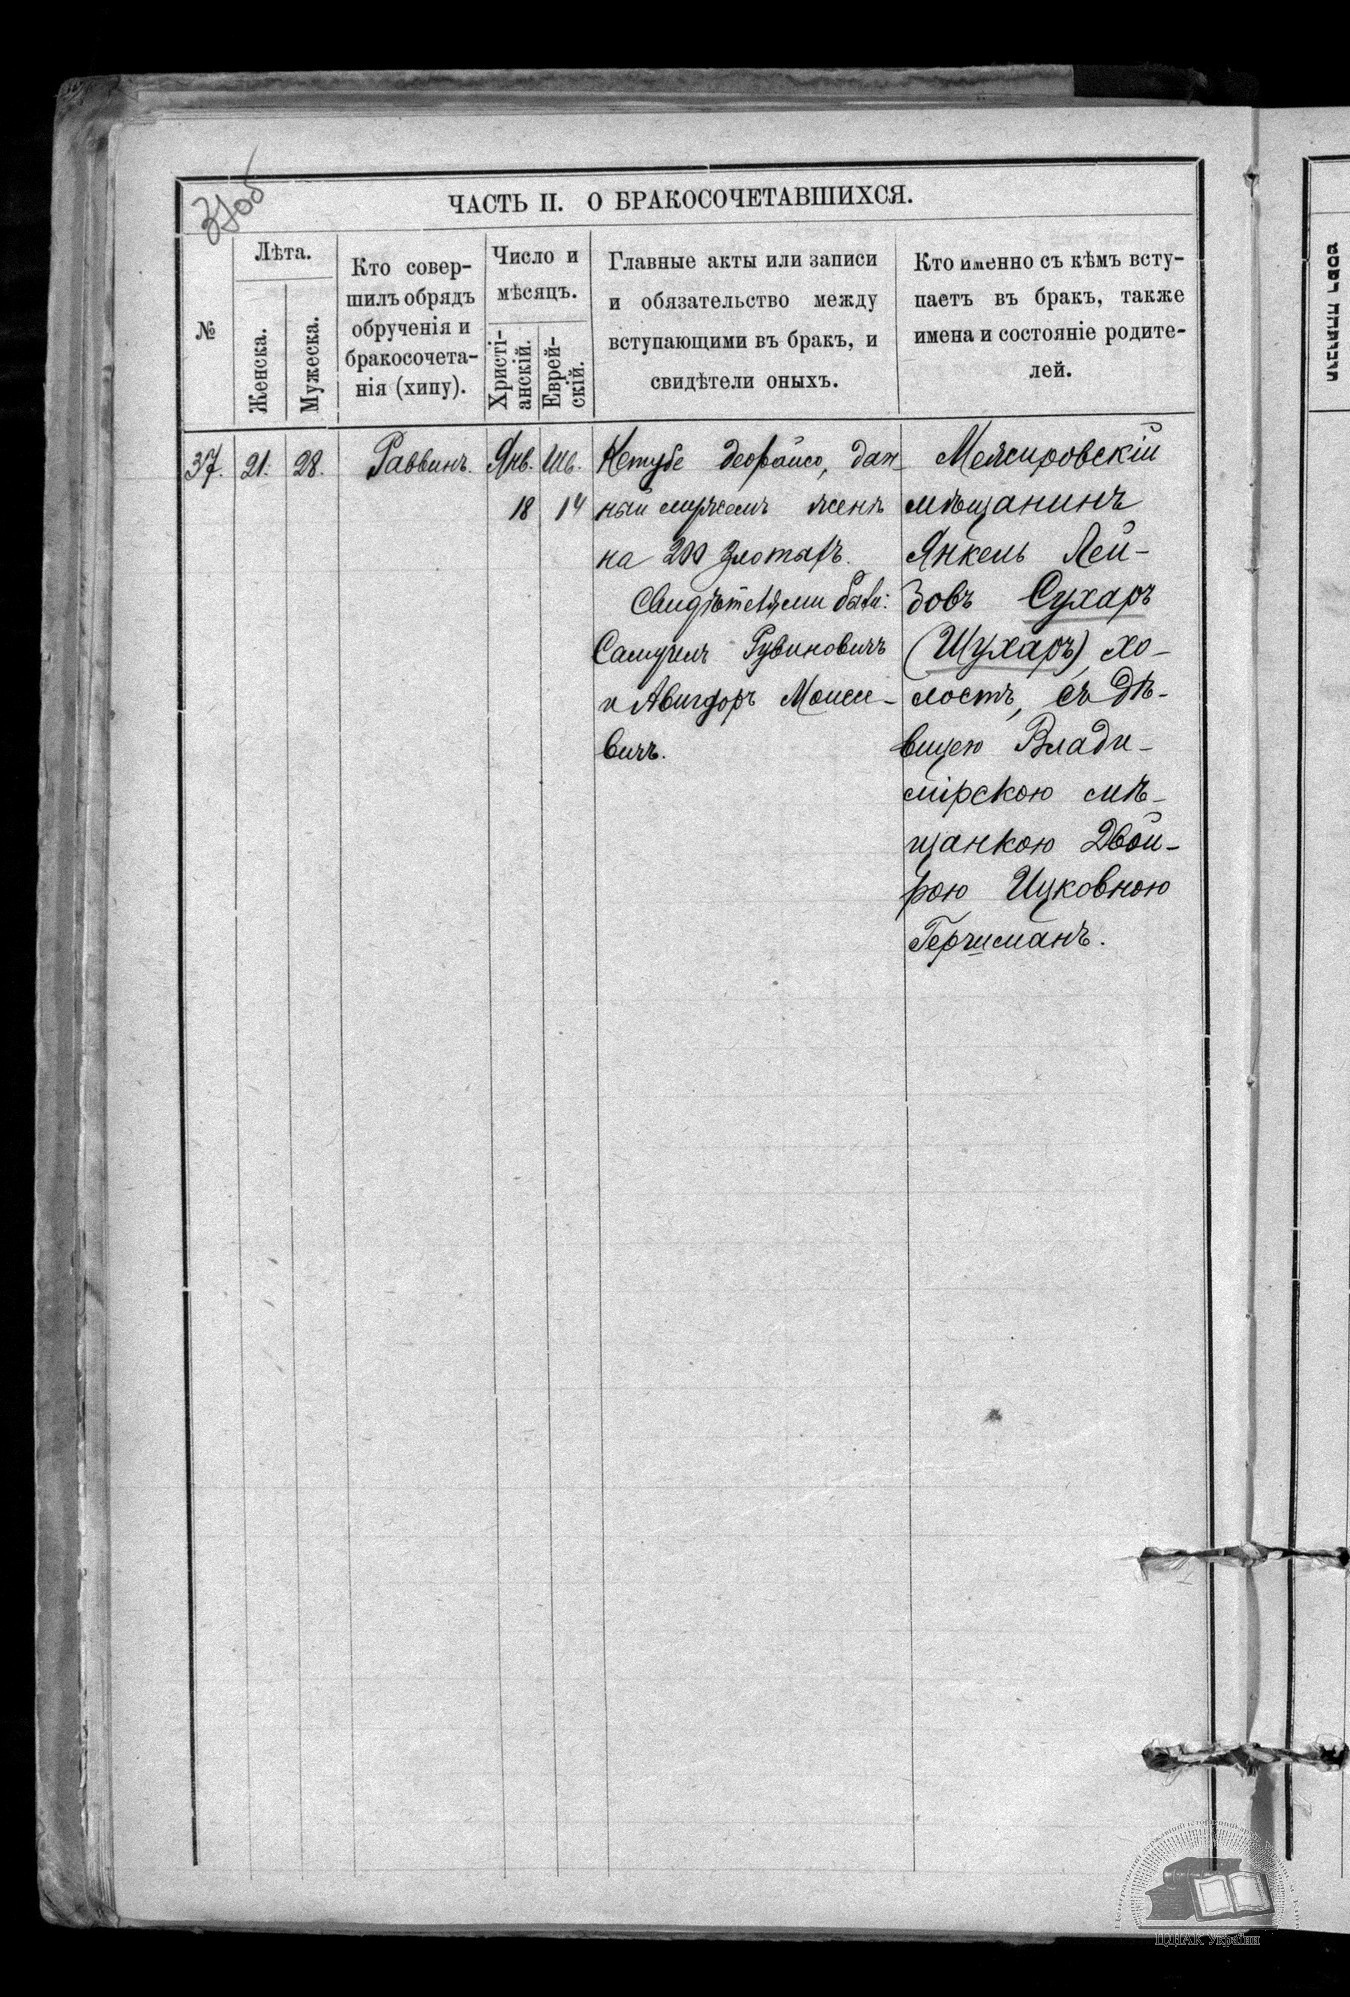 37об
ЧАСТЬ II. О БРАКОСОЧЕТАВШИХСЯ.
№
Лѣта.
Женска.
Мужеска.
Кто совер-
шилъ обрядъ
обрученія и
бракосочета-
нія (хипу).
Число и
мѣсяцъ.
Христі-
анскій.
Еврей-
скій.
Главные акты или записи
и обязательство между
вступающими въ бракъ, и
свидѣтели оныхъ.
Кто именно съ кѣмъ всту-
паетъ въ бракъ, также
имена и состояніе родите-
лей.
37.
21.
28.
Раввинъ.
Янв.
18
Шв.
14
Кетубе деорайсо, дан-
ный мужемъ женѣ
на 200 злотыхъ.
Свидѣтелями были:
Самуилъ Рувиновичъ
и Авигдоръ Моисее-
вичъ.
Межировскій
мѣщанинъ
Янкель Лей-
зовъ Сухаръ
(Шухаръ), хо-
лостъ, съ дѣ-
вицею Влади-
мірскою мѣ-
щанкою Двой-
рою Ицковною
Герчисманъ.
ЦДІАК України